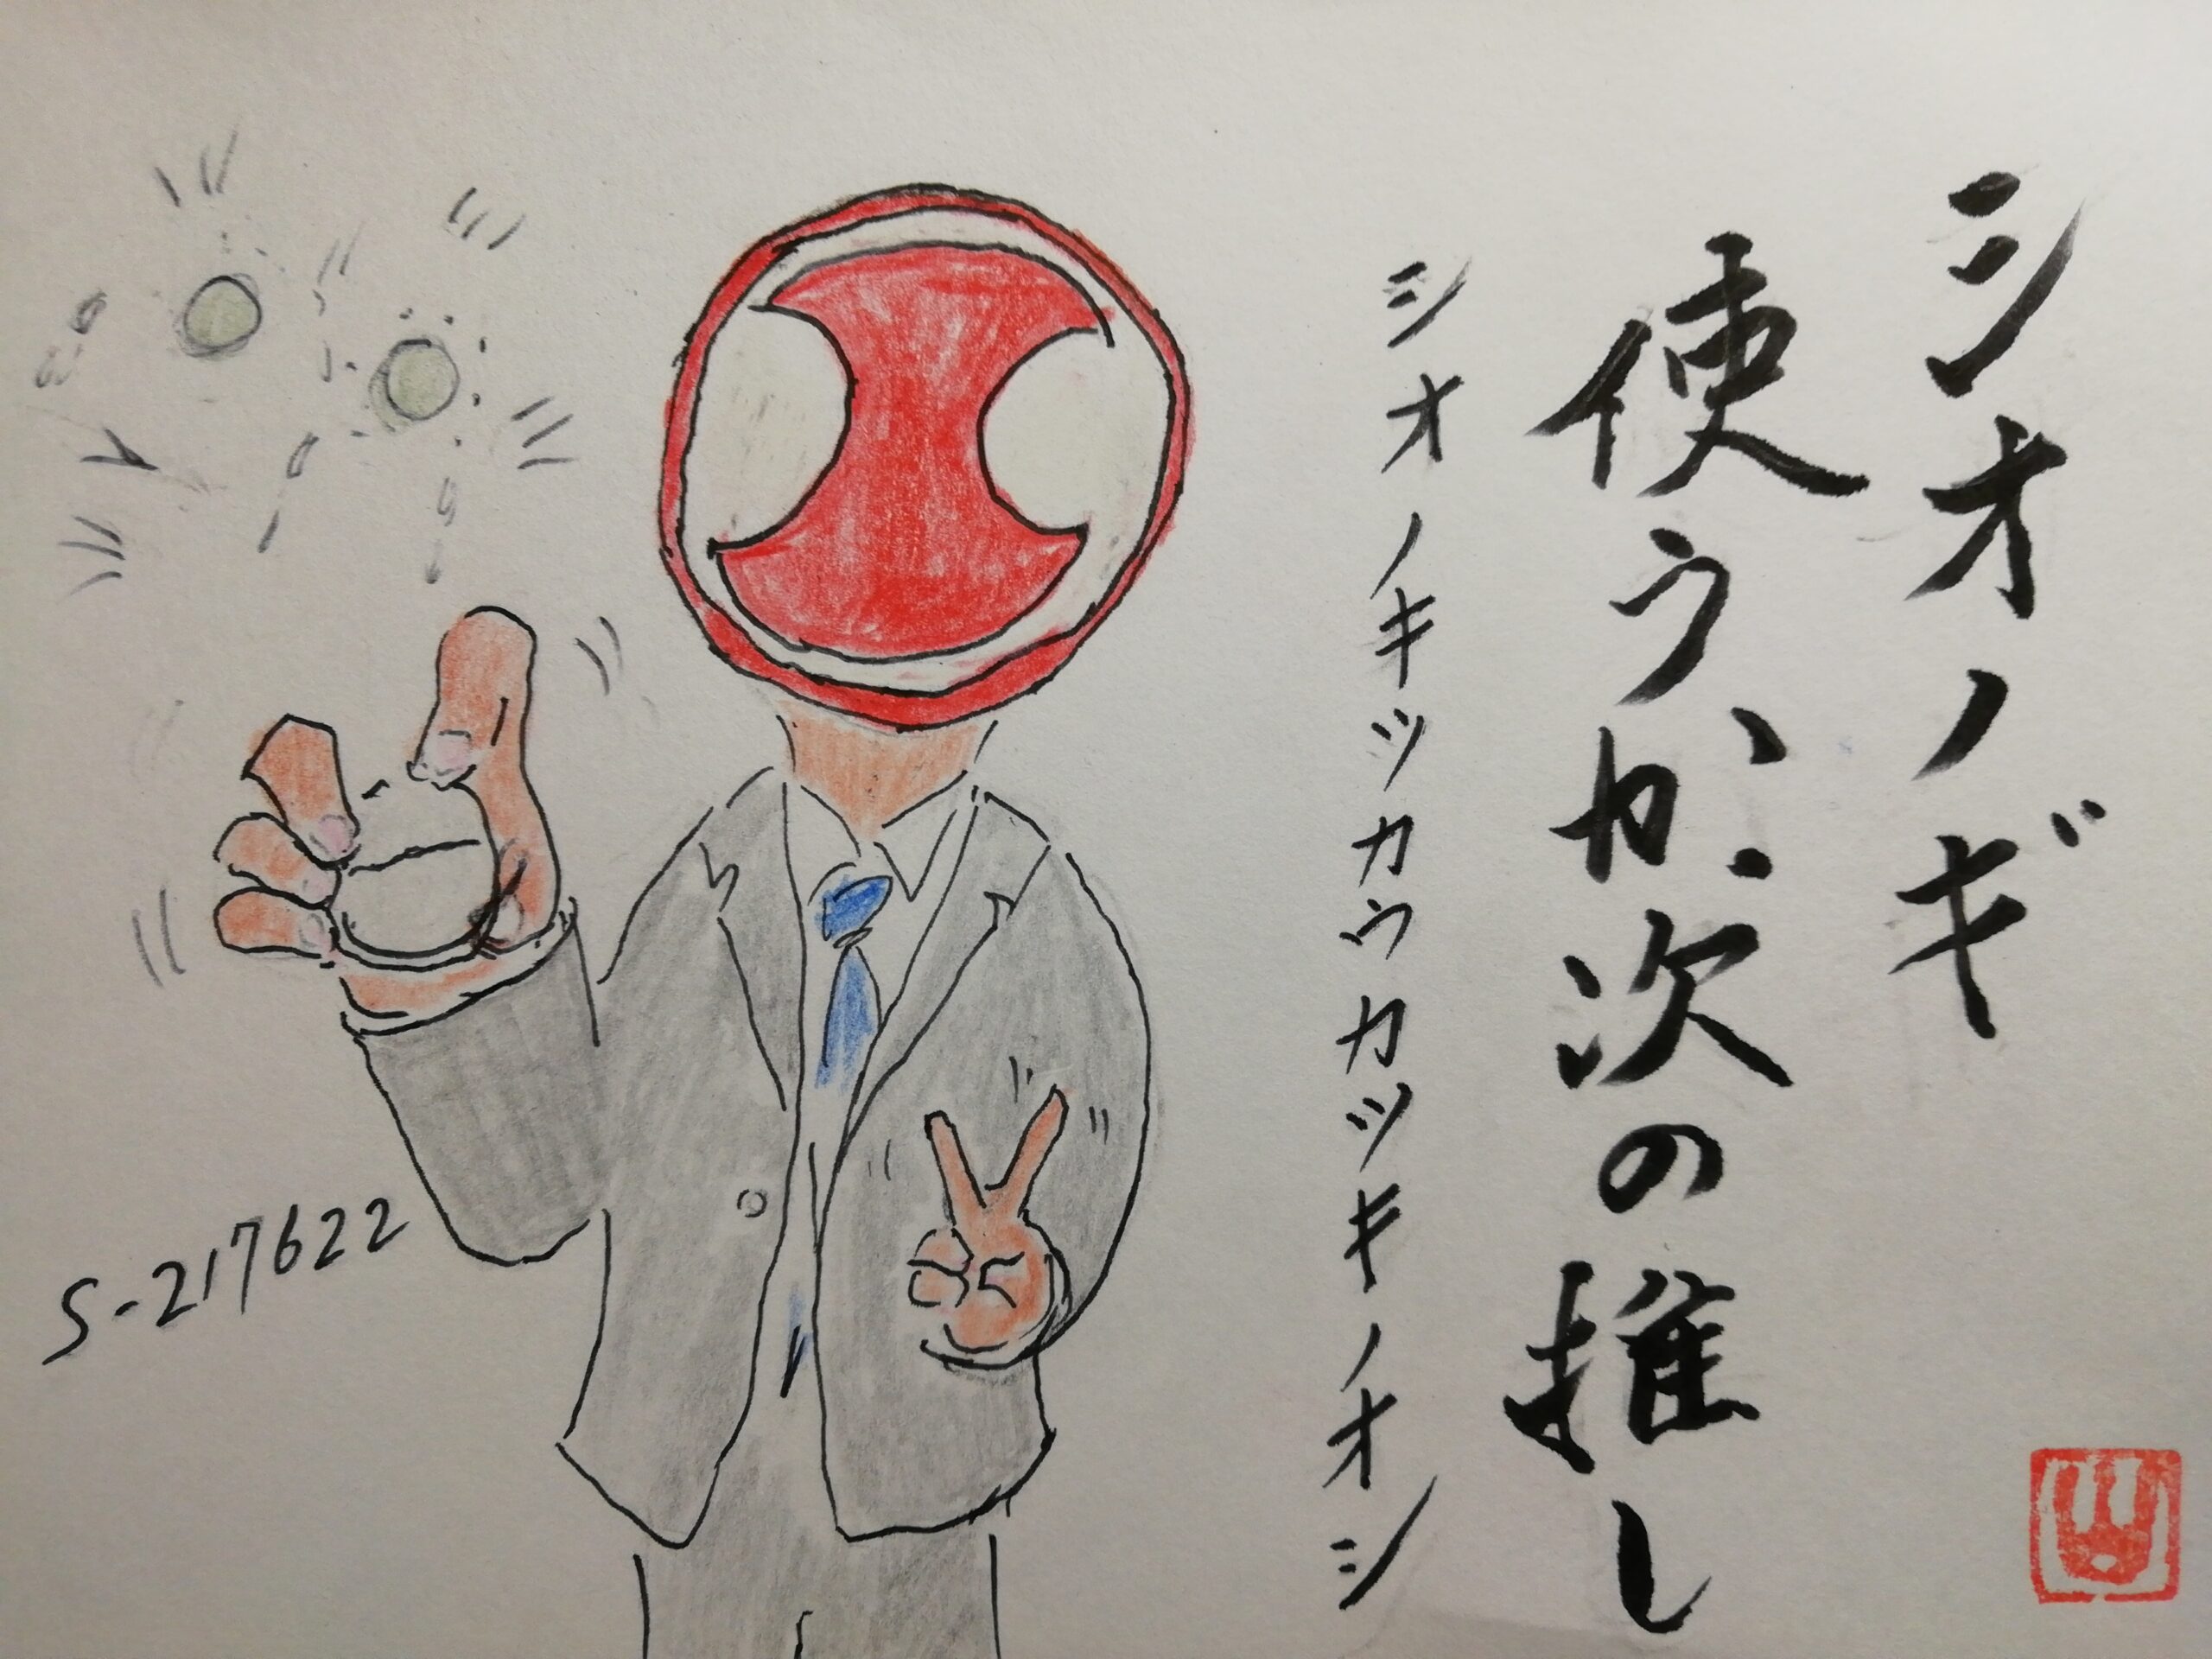 シオノギ
使うか、次の推し
シオノキツカウカツキノオシ
S-217622